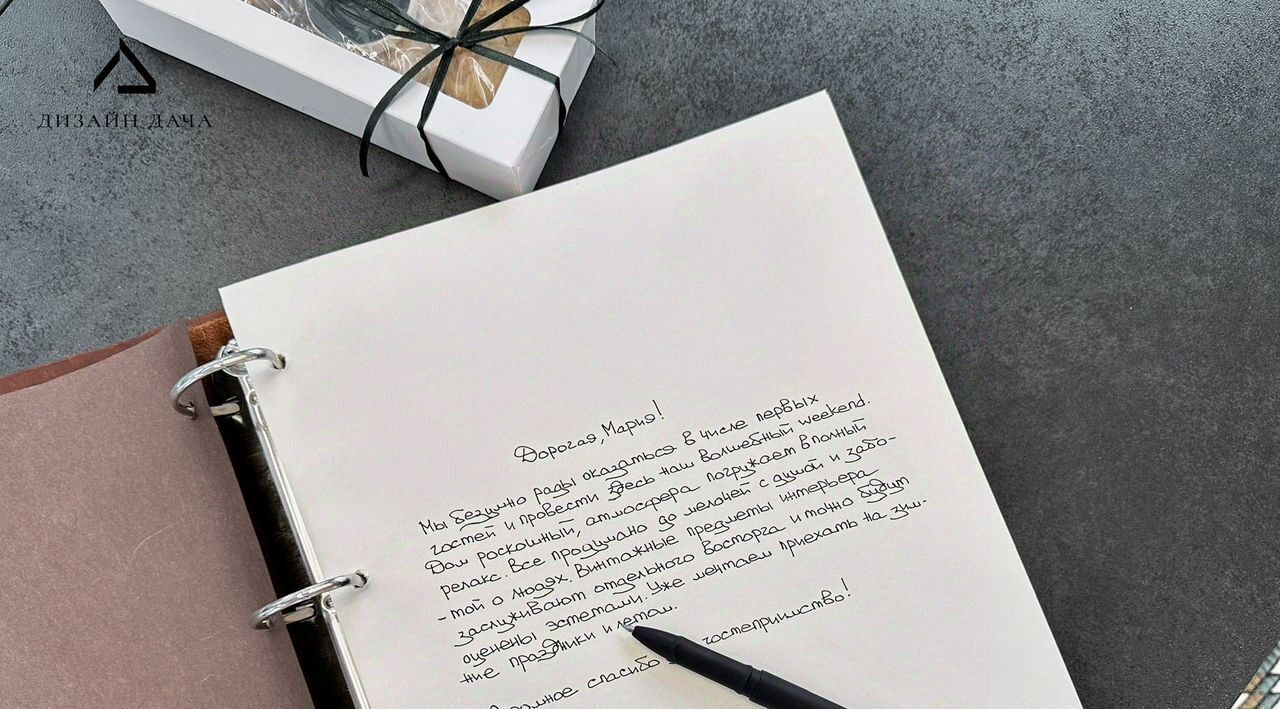 ДИЗАЙН ДАЧА
Дорогая, Мария!
Мы безумно рады оказаться в числе первых
гостей и провести здесь наш волшебный weekend.
Дом роскошный, атмосфера погружает в полный
релакс. Все продумано до мелочей с душой и забо-
-той о людях. Винтажные предметы интерьера
заслуживают отдельного восторга и точно будут
оценены эстетами. Уже мечтаем приехать на зим-
ние праздники и летом.
спасибо гостеприимство!